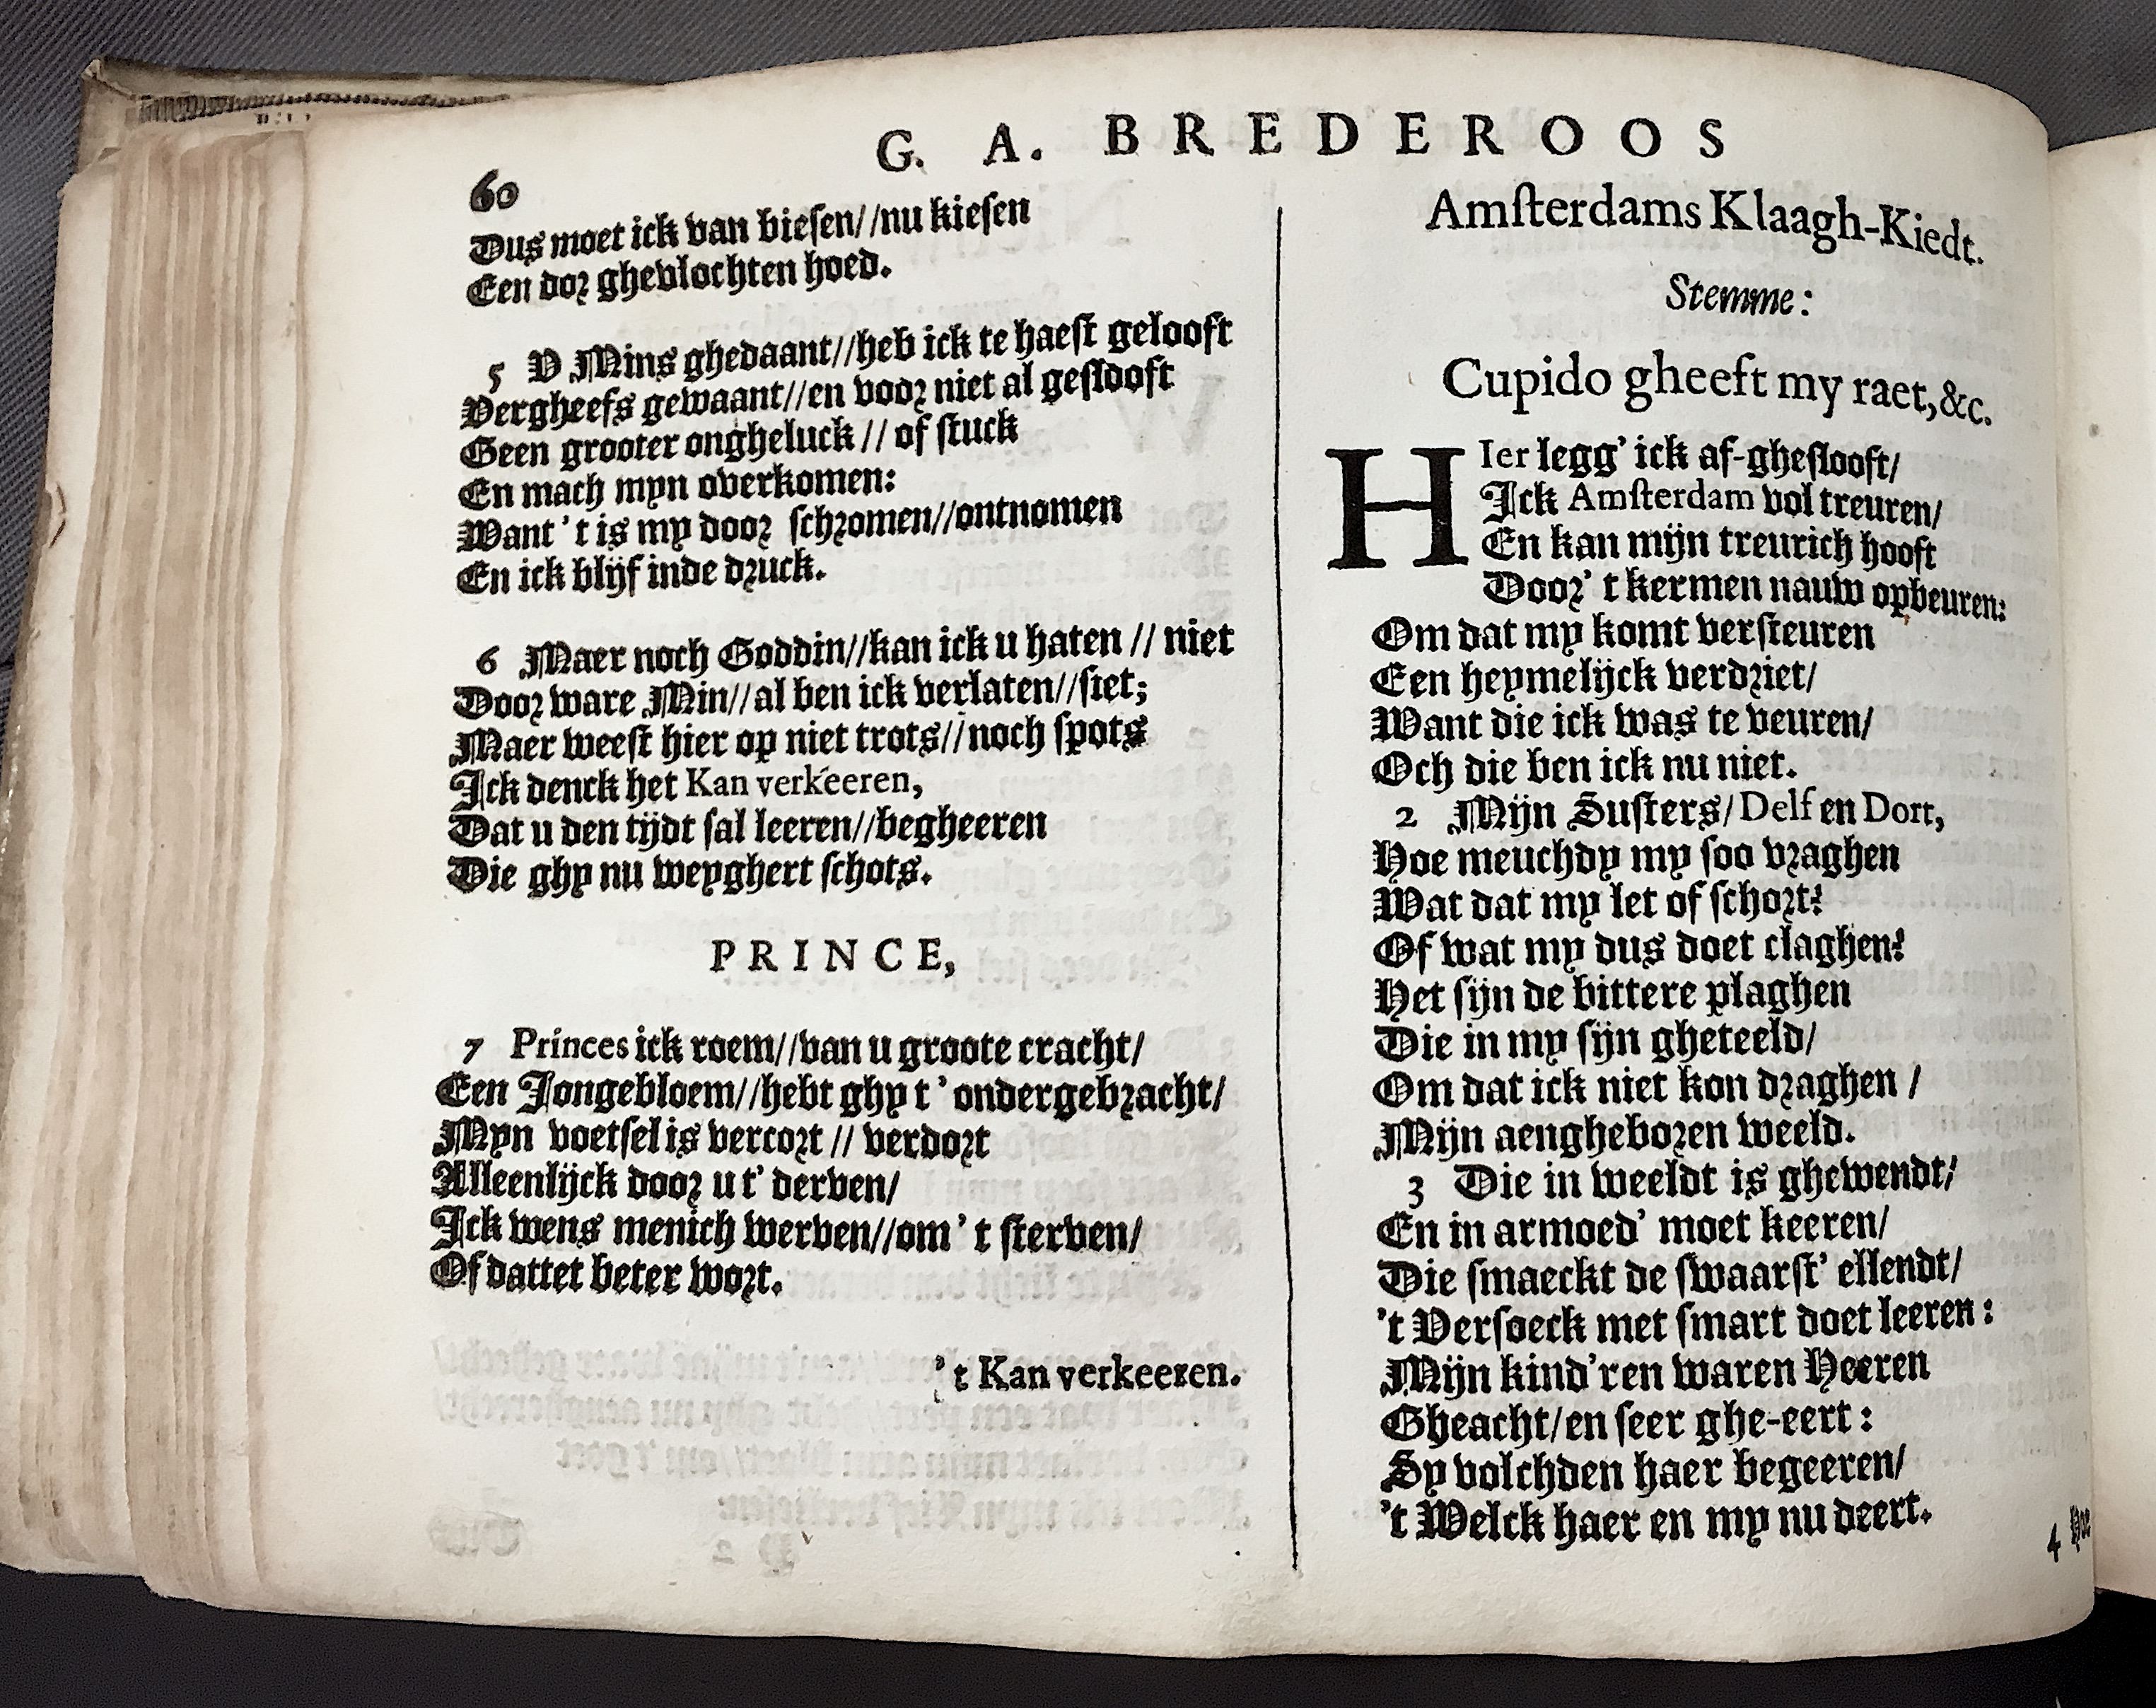 60
G. A. BREDEROOS
Dus moet ick van biesen//nu kiesen
Een dor ghevlochten hoed.
5 V Mins ghedaant//heb ick te haest gelooft
Vergheefs gewaant//en voor niet al geslooft
Geen grooter ongheluck // of stuck
En mach myn overkomen:
Want 't is my door schromen//ontnomen
En ick blijf inde druck.
6 Maer noch Goddin//kan ick u haten // niet
Door ware Min//al ben ick verlaten//siet;
Maer weest hier op niet trots//noch spots
Ick denck het Kan verkeeren,
Dat u den tijdt sal leeren//begheeren
Die ghy nu weyghert schots.
PRINCE,
7 Princes ick roem//van u groote cracht/
Een Jongebloem//hebt ghy t' ondergebracht/
Myn voetsel is vercort // verdort
Alleenlijck door u t' derven/
Ick wens menich werven//om 't sterven/
Of dattet beter wort.
't Kan verkeeren.
Amsterdams Klaagh-Kiedt.
Stemme:
Cupido gheeft my raet, &c.
HIer legg' ick af-gheslooft/
Ick Amsterdam vol treuren/
En kan mijn treurich hooft
Door 't kermen nauw opbeuren:
Om dat my komt versteuren
Een heymelijck verdriet/
Want die ick was te veuren/
Och die ben ick nu niet.
2 Mijn Susters/ Delf en Dort,
Hoe meuchdy my soo vraghen
Wat dat my let of schort?
Of wat my dus doet claghen?
Het sijn de bittere plaghen
Die in my sijn gheteeld/
Om dat ick niet kon draghen /
Mijn aengheboren weeld.
3 Die in weeldt is ghewendt/
En in armoed' moet keeren/
Die smaeckt de swaarst' ellendt/
't Versoeck met smart doet leeren:
Mijn kind'ren waren Heeren
Gheacht/en seer ghe-eert:
Sy volchden haer begeeren/
't Welck haer en my nu deert.
4 Hoe